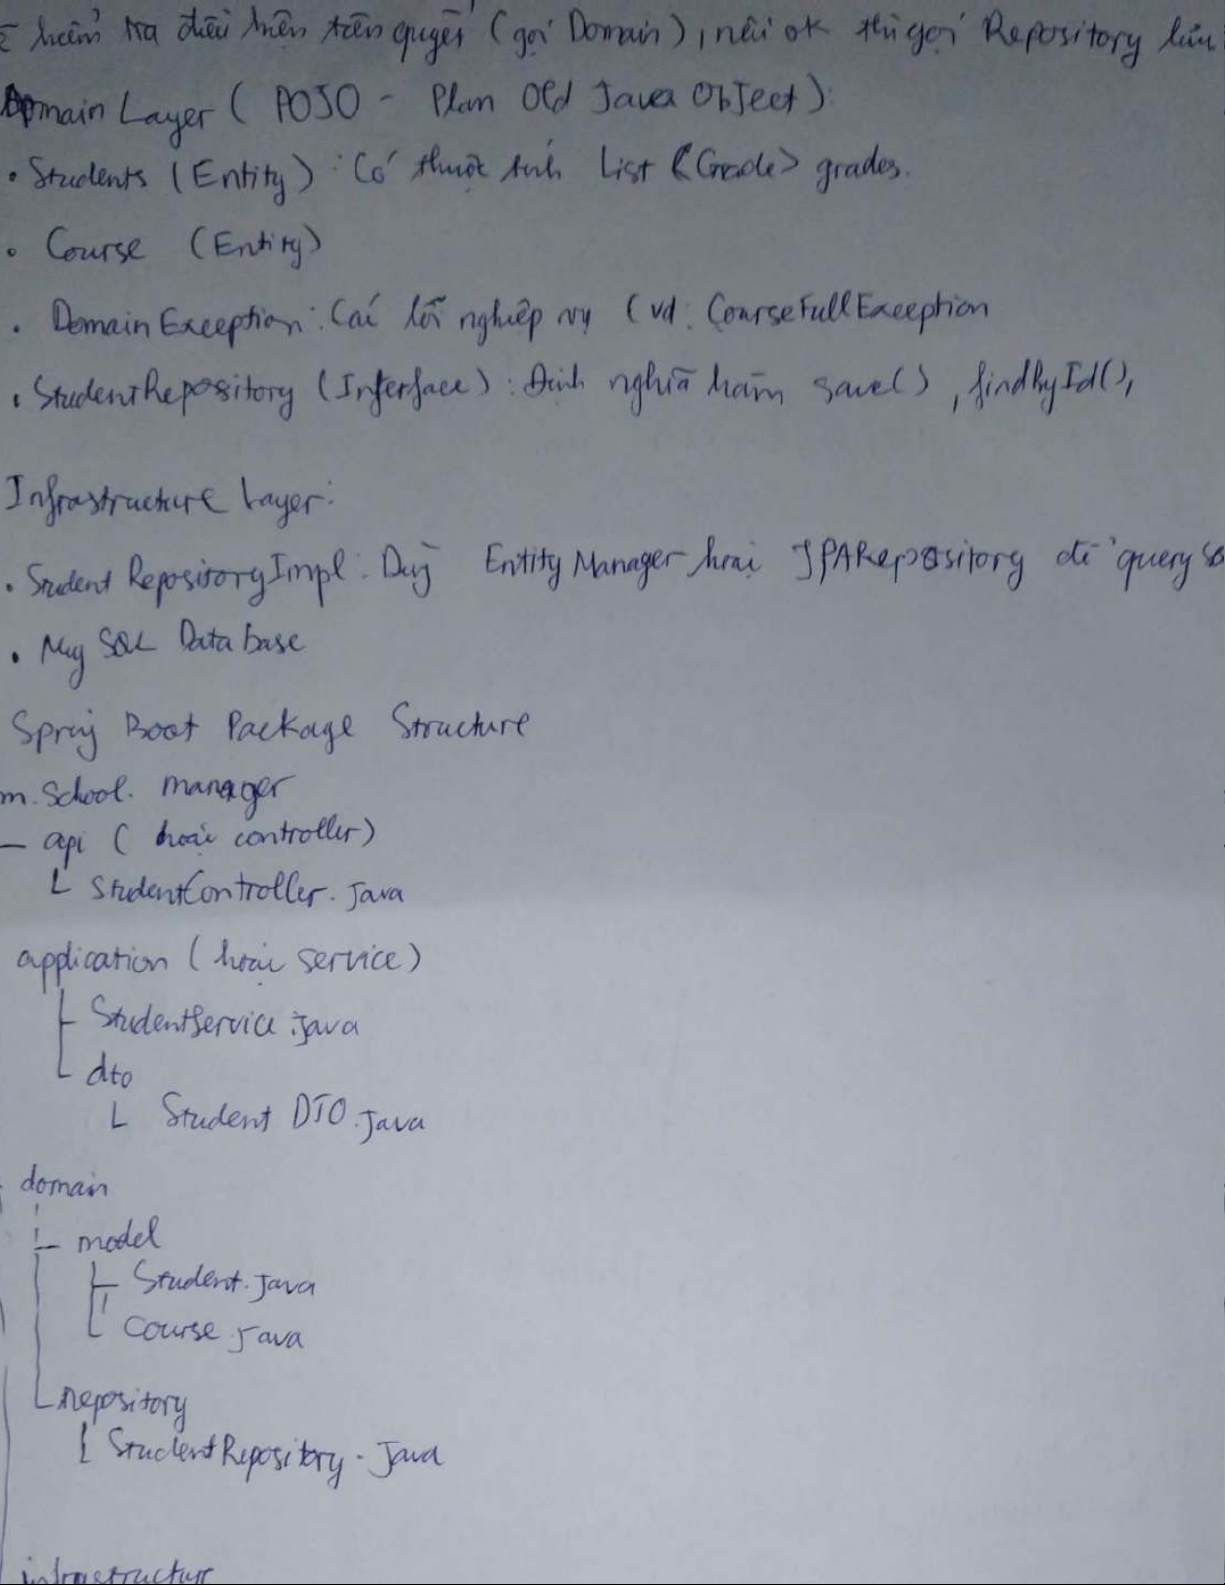 kiểm tra điều kiện tiên quyết (gọi Domain), nếu ok thì gọi Repository lưu
Domain Layer ( POJO - Plan Old Java Object):
• Students (Entity) : Có thuộc tính List <Grade> grades.
• Course (Entity)
• Domain Exception: Các lỗi nghiệp vụ (vd: CourseFullException
• StudentRepository (Interface) : Định nghĩa hàm save() , findbyId(),
Infrastructure Layer:
• Student RepositoryImpl : Dùng Entity Manager hoặc JPARepository để query
• My SQL Database
Spring Boot Package Structure
m. School. manager
— api ( hoặc controller)
└ StudentController. Java
application ( hoặc service)
├ StudentService.java
└ dto
└ Student DTO.Java
domain
├ model
├ Student. Java
└ Course Java
└ repository
└ StudentRepository. Java
infrastructure